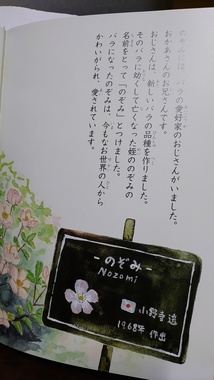 のぞみには、バラの愛好家のおじさんがいました。
おかあさんのお兄さんです。
おじさんは、新しいバラの品種を作りました。
そのバラに幼くして亡くなった姪ののぞみの
名前をとって「のぞみ」とつけました。
バラになったのぞみは、今もなお世界の人から
かわいがられ、愛されています。
-のぞみ-
Nozomi
小野寺透
1968年 作出